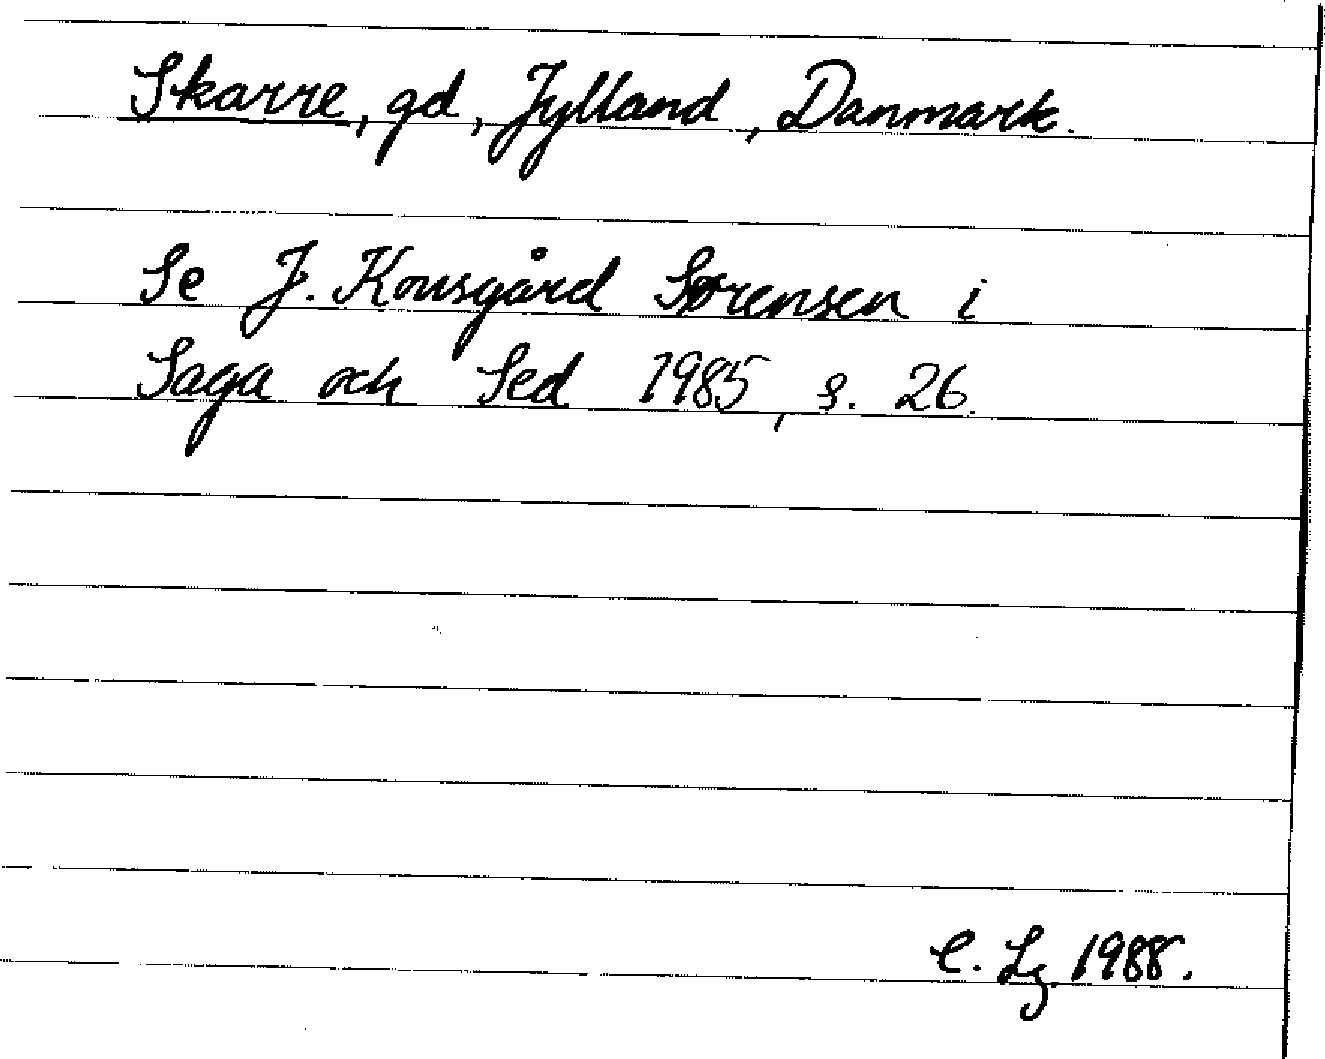 Skarre, gd, Jylland, Danmark.
Se J. Kousgård Sørensen i
Saga och Sed 1985, s. 26.
C. Lg. 1988.